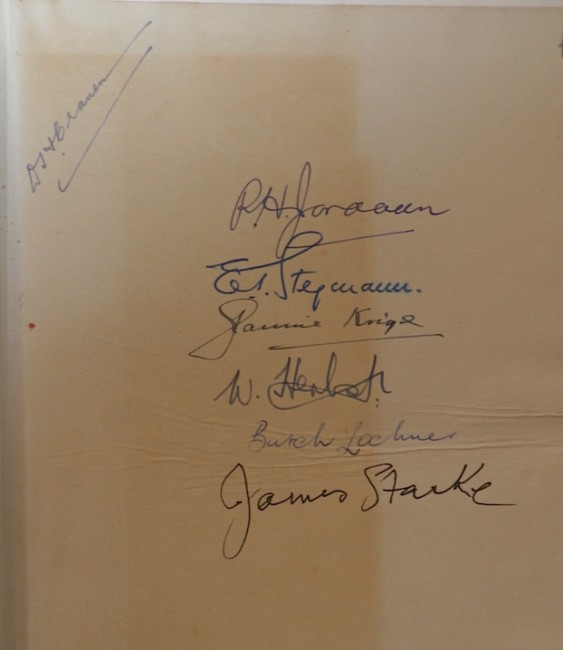 D S H Craven
P.H. Jordaan
Jannie Krige
W. Herbst.
Butch Lochner
James Starke
Stegmann.